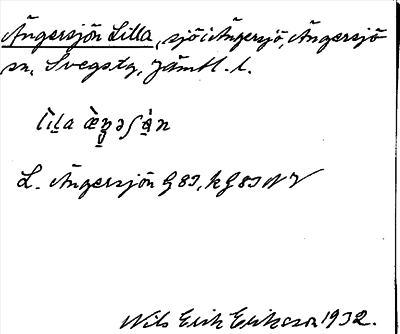 Ängersjön Lilla, sjö i Ängersjö, Ängersjö
sn, Svegs tg, Jämtl. l.
lìla æ̀ŋəʃàn
L. Ängersjön G 85, k G 85 N V
Nils Erik Eriksson 1932.